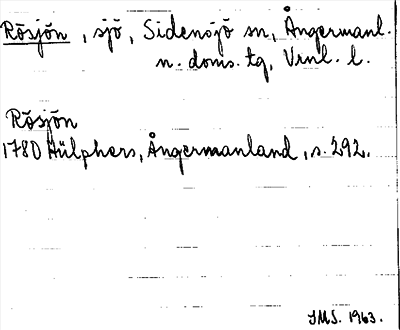 Rösjön, sjö, Sidensjö sn, Ångermanl.
n. doms. tg, Vrnl. l.
Rösjön
1780 Hülphers, Ångermanland, s. 292.
JMS. 1963.